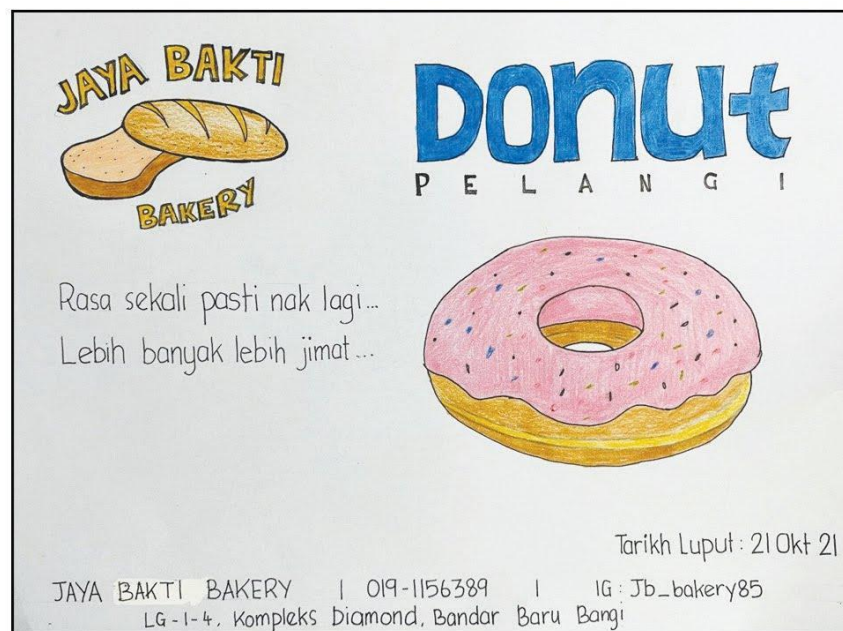 JAYA BAKTI
BAKERY
DONUt
PELANGI
Rasa sekali pasti nak lagi...
Lebih banyak lebih jimat...
Tarikh Luput : 21 Okt 21
JAYA BAKTI BAKERY | 019-1156389 | IG : Jb_bakery85
LG-1-4, Kompleks Diamond, Bandar Baru Bangi